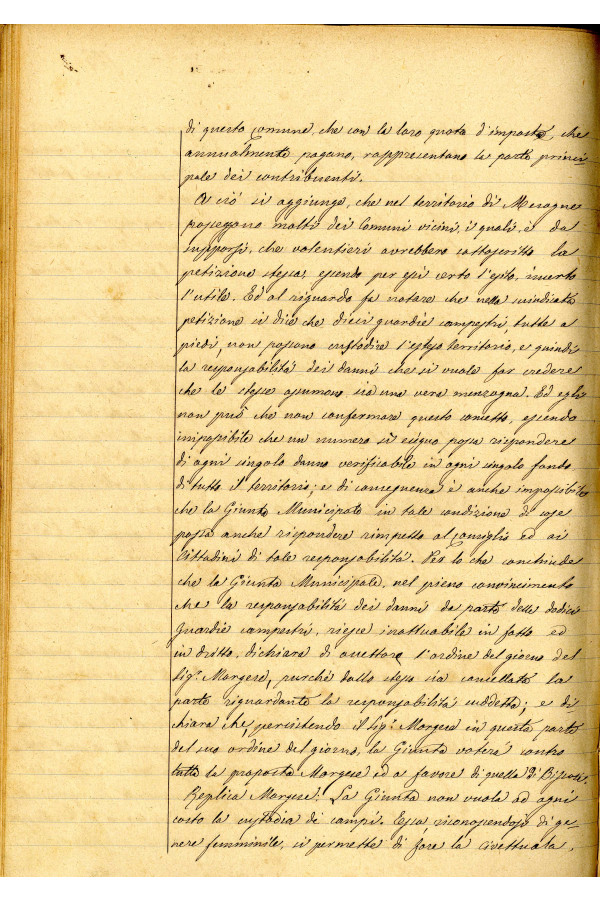 di questo Comune, che con la loro quota d'imposta, che
annualmente pagano, rappresentano la parte princi-
pale dei contribuenti.
A ciò si aggiunge, che nel territorio di Mesagne
posseggono molti dei Comuni vicini, i quali, è da
supporsi, che volentieri avrebbero sottoscritto la
petizione stessa, essendo per essi certo l'esito, incerto
l'utile. Ed al riguardo fa notare che nella suindicata
petizione si dice che dieci guardie campestri, tutte a
piedi, non possono custodire l'esteso territorio, e quindi
la responsabilità dei danni che si vuole far credere
che le stesse assumono sia una vera menzogna. Ed egli
non può che non confermare questo concetto, essendo
impossibile che un numero sì esiguo possa rispondere
di ogni singolo danno verificabile in ogni singolo fondo
di tutto il territorio; e di conseguenza è anche impossibile
che la Giunta Municipale in tale condizione di cose
possa anche rispondere rimpetto al Consiglio ed ai
Cittadini di tale responsabilità. Per lo che conchiude
che la Giunta Municipale, nel pieno convincimento
che la responsabilità dei danni da parte delle dodici
Guardie campestri, riesce inattuabile in fatto ed
in dritto, dichiara di accettare l'ordine del giorno del
Sig.r Morgese, purché dallo stesso sia cancellata la
parte riguardante la responsabilità suddetta; e di
chiara che, persistendo il Sig.r Morgese in questa parte
del suo ordine del giorno, la Giunta voterà contro
tutta la proposta Morgese ed a favore di quella
Replica Morgese: La Giunta non vuole ad ogni
costo la custodia di campi. Essa riconoscendosi di ge-
nere femminile, si permette di fare la civettuola,